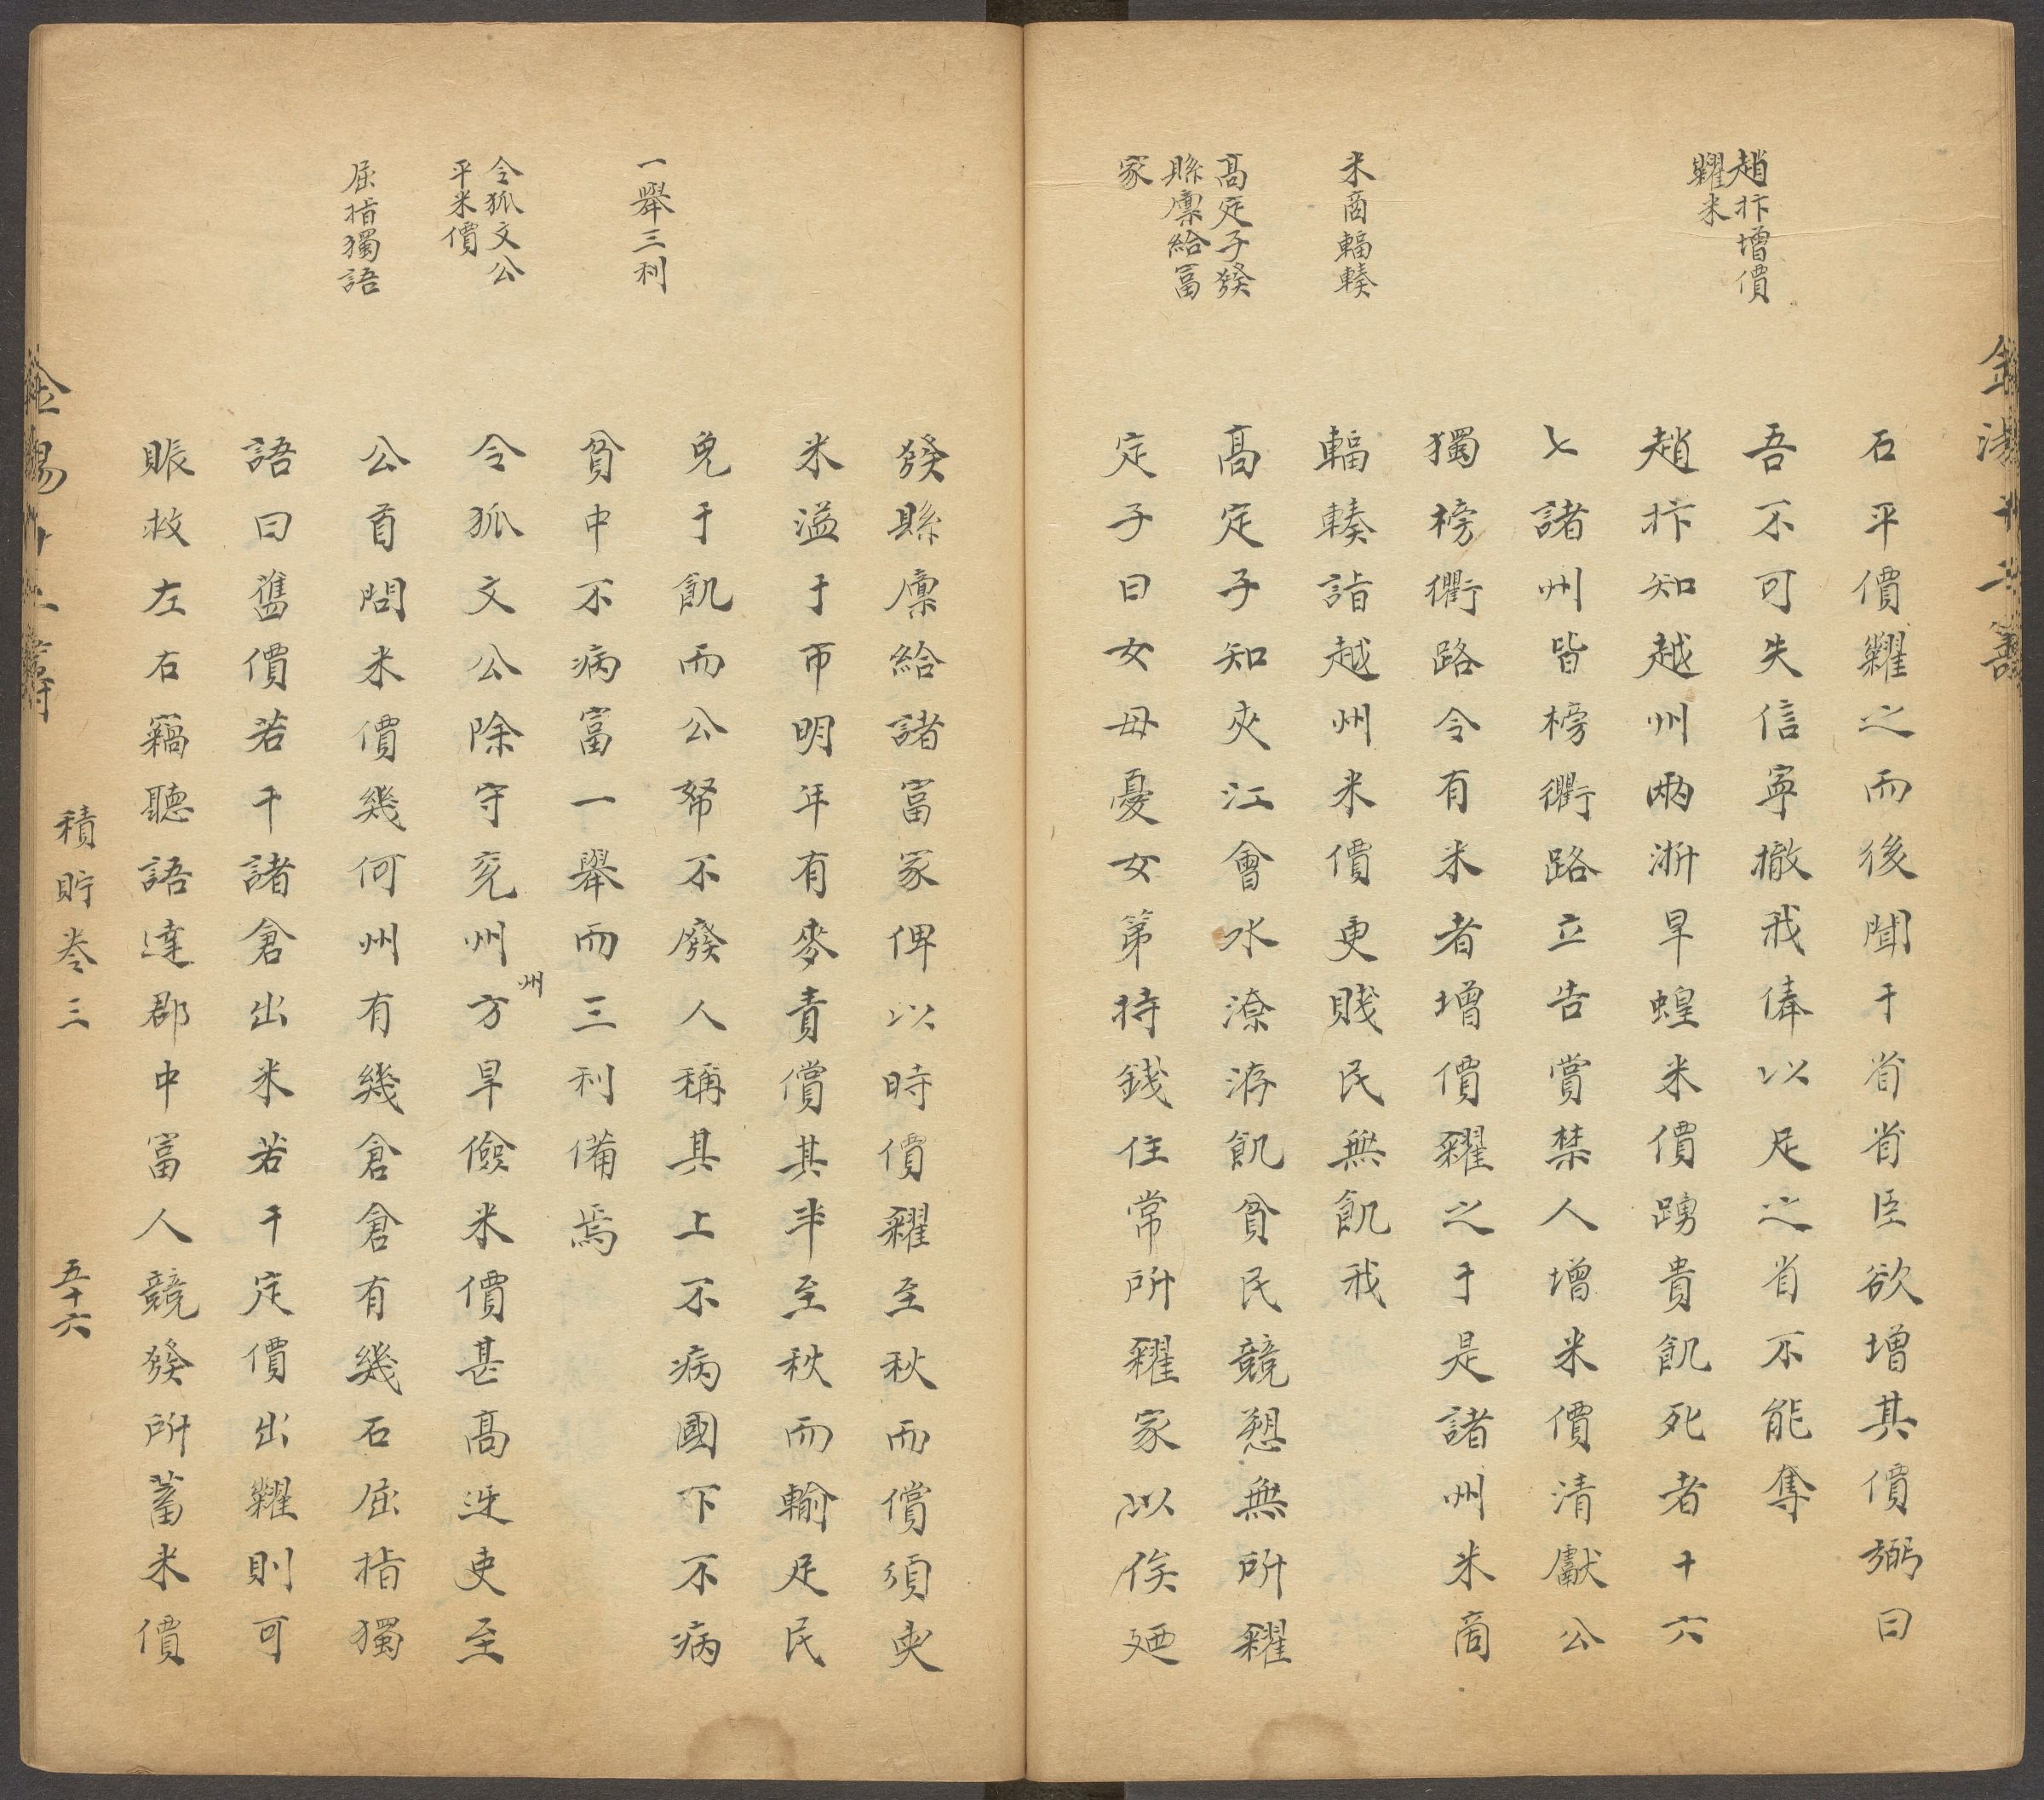 趙抃增價
糶米
米商輻輳
高定子發
縣廪給富
家
石平價糶之而後聞于省省臣欲增其價弼曰
吾不可失信寧撤我俸以足之省不能奪
趙抃知越州兩浙旱蝗米價踴貴飢死者十六
七諸州皆榜衢路立告賞禁人增米價清獻公
獨榜衢路令有米者增價糶之于是諸州米商
輻輳詣越州米價更賤民無飢我
高定子知夾江會水潦洊飢貧民競愬無所糴
定子曰女毋憂女第持錢住常所糴家以俟廼
一舉三利
令狐文公
平米價
屈指獨語
發縣廪給諸富家俾以時價糶至秋而償須臾
米溢于市明年有麥責償其半至秋而輸足民
免于飢而公帑不廢人稱其上不病國下不病
貧中不病富一舉而三利備焉
令狐文公除守兖州州方旱儉米價甚高迓吏至
公首問米價幾何州有幾倉倉有幾石屈指獨
語曰舊價若干諸倉出米若干定價出糶則可
賑救左右竊聽語達郡中富人競發所蓄米價
積貯卷三
五十六